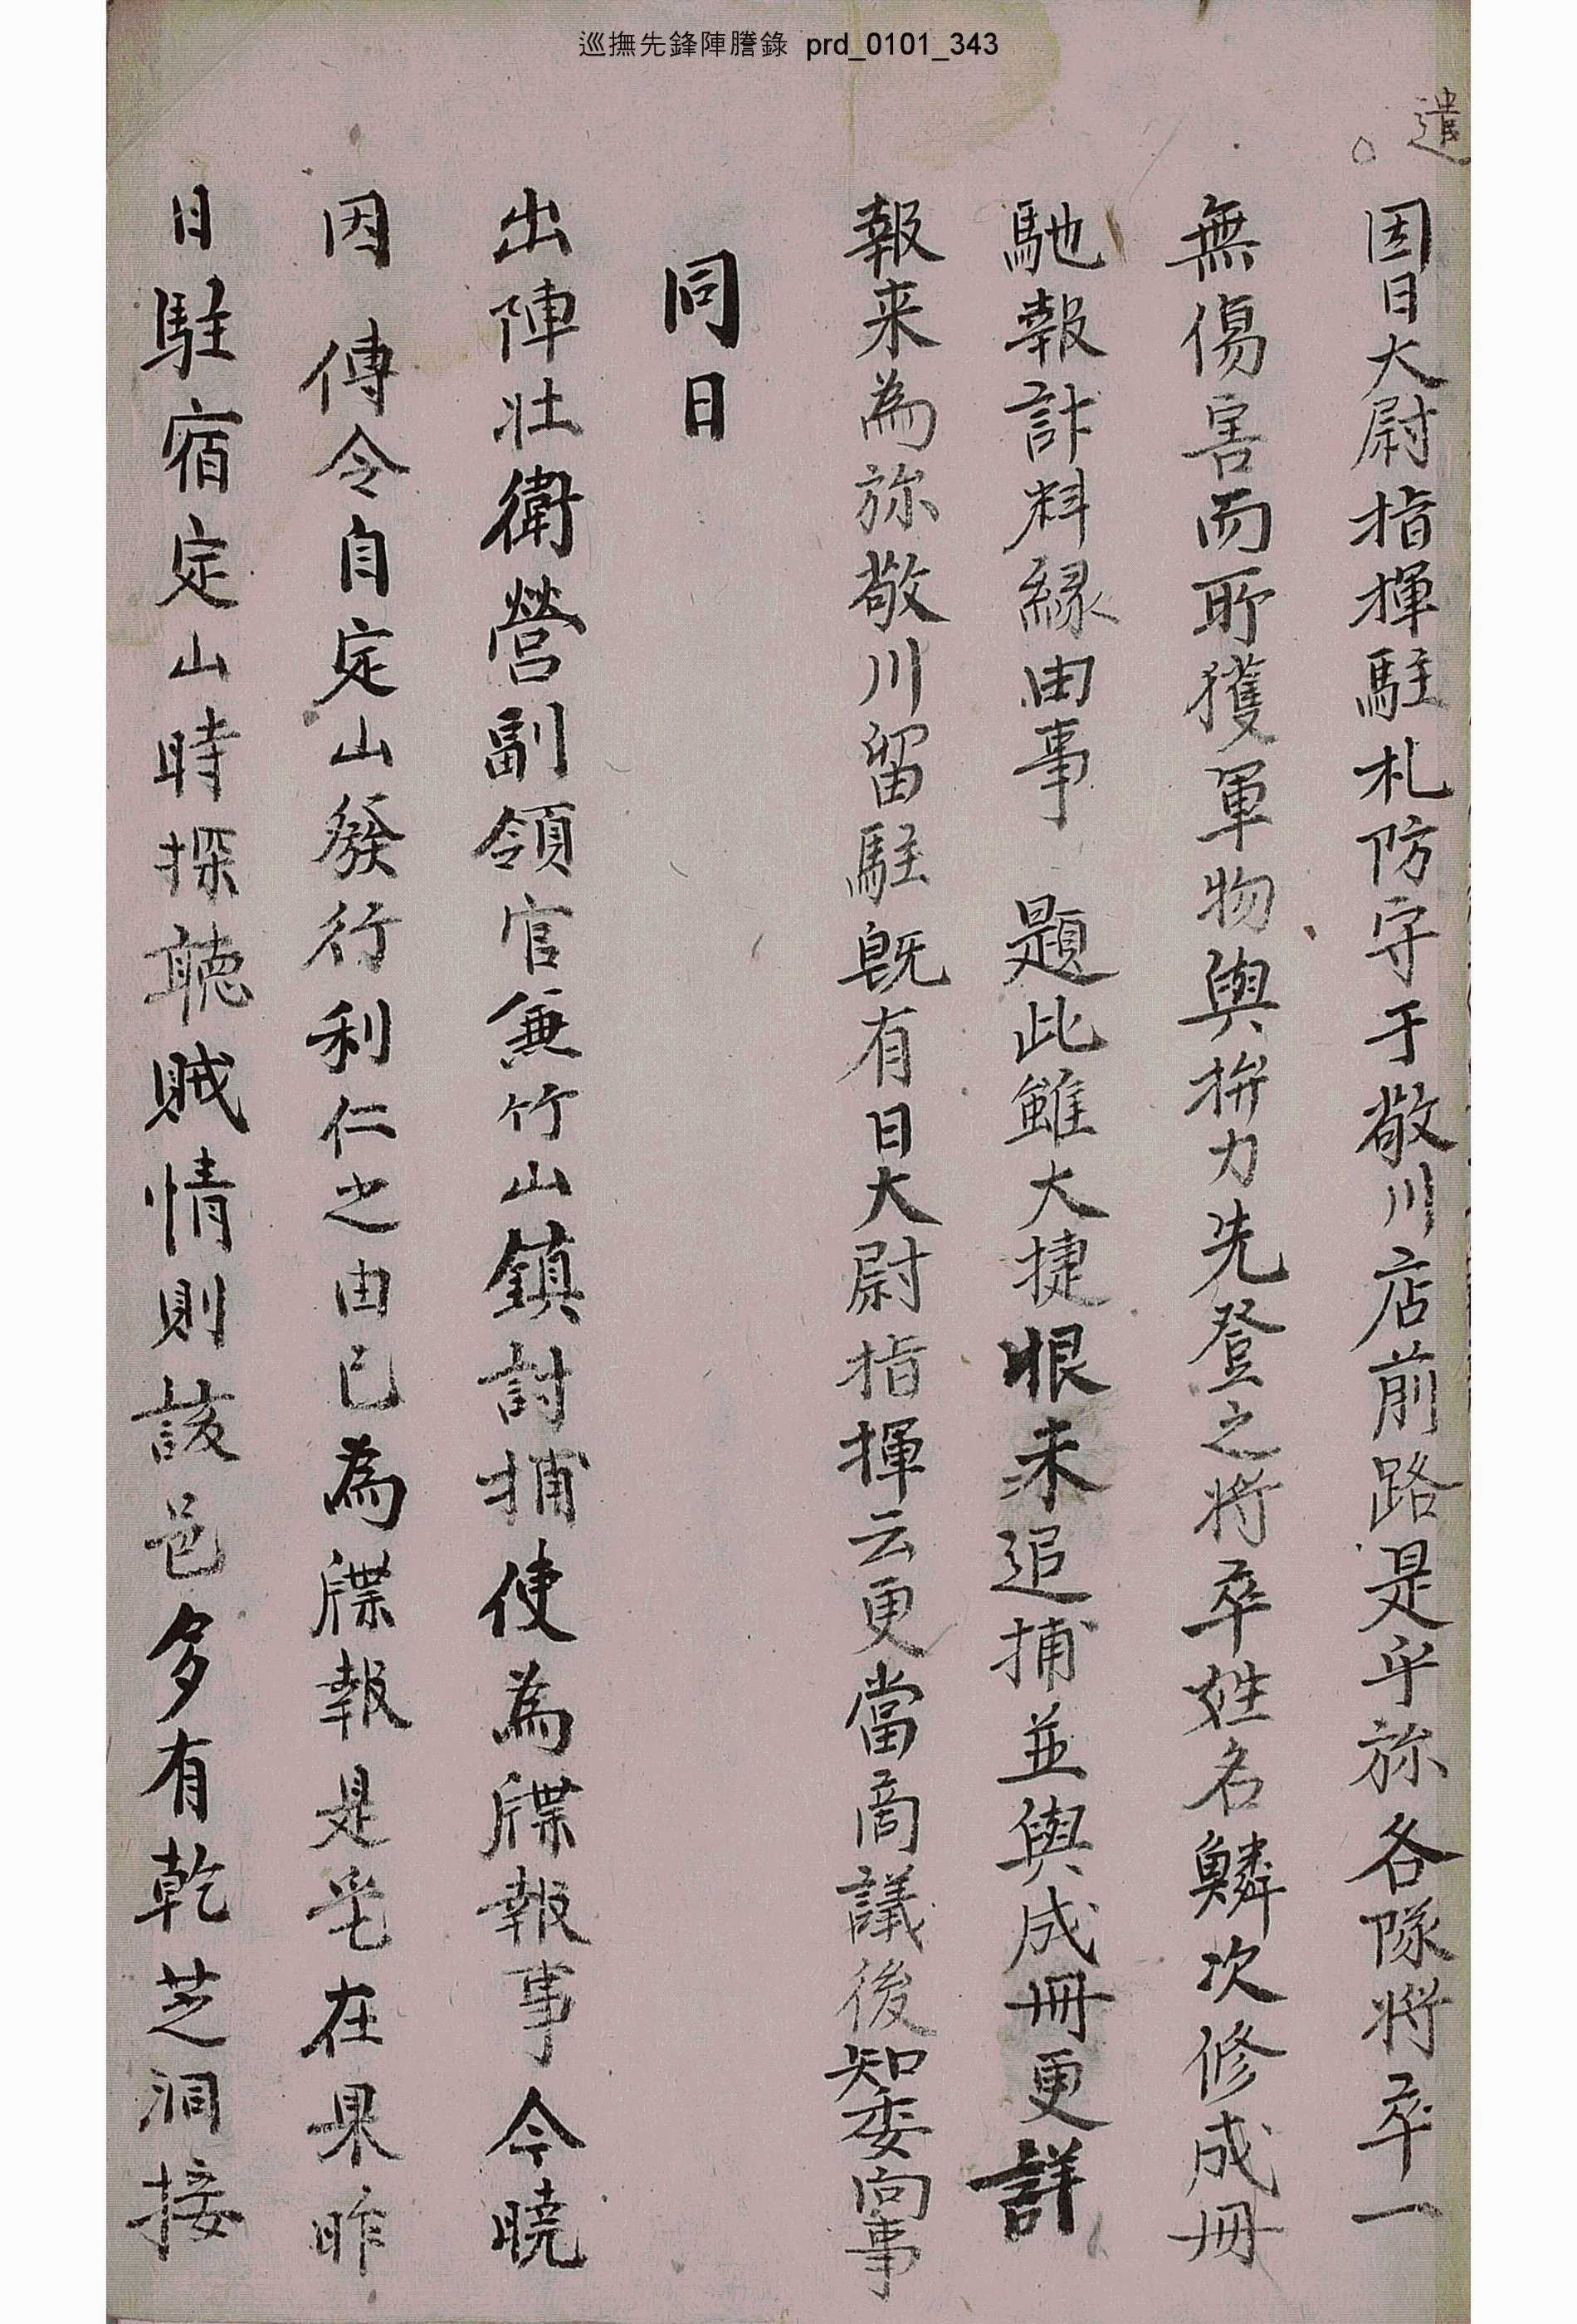 巡撫先鋒陣謄錄 prd_0101_343
遣
因日大尉指揮駐札防守于敬川店前路是乎旀各隊將卒一
無傷害而所獲軍物與拚力先登之將卒姓名鱗次修成冊
馳報計料緣由事 題此雖大捷恨未追捕並與成冊更詳
報来為旀敬川留駐旣有日大尉指揮云更當商議後知委向事
同日
出陣壯衛營副領官兼竹山鎮討捕使為牒報事今曉
因 傳令自定山發行利仁之由已為牒報是乎在果昨
日駐宿定山時探聽賊情則該邑多有乾芝洞接